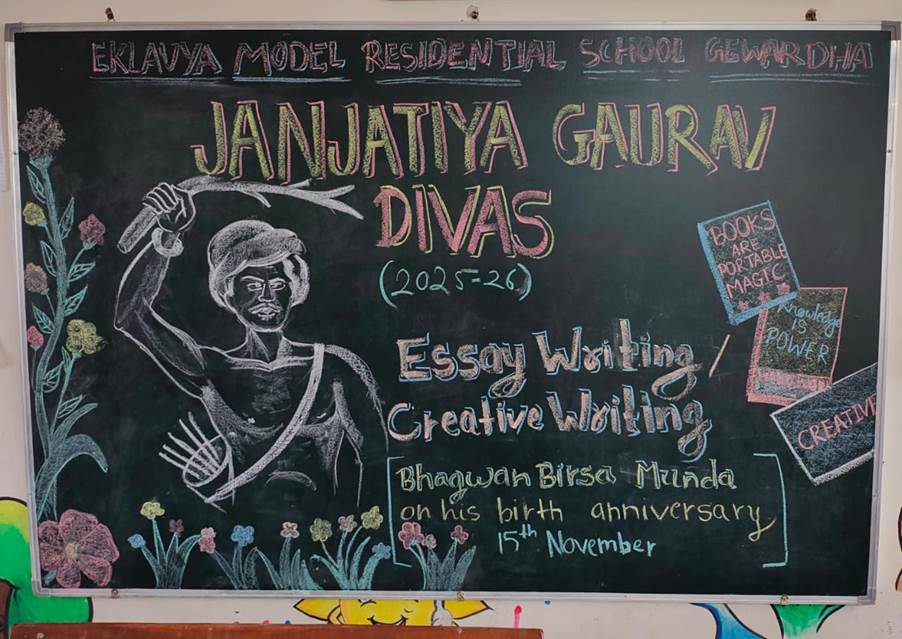 EKLAVYA MODEL RESIDENTIAL SCHOOL GEWARDHA
JANJATIYA GAURAV
DIVAS
(2025-26)
Essay Writing /
Creative Writing
[Bhagwan Birsa Munda
on his birth anniversary
15th November]
BOOKS
ARE
PORTABLE
MAGIC
Knowledge
IS
POWER
CREATIVE